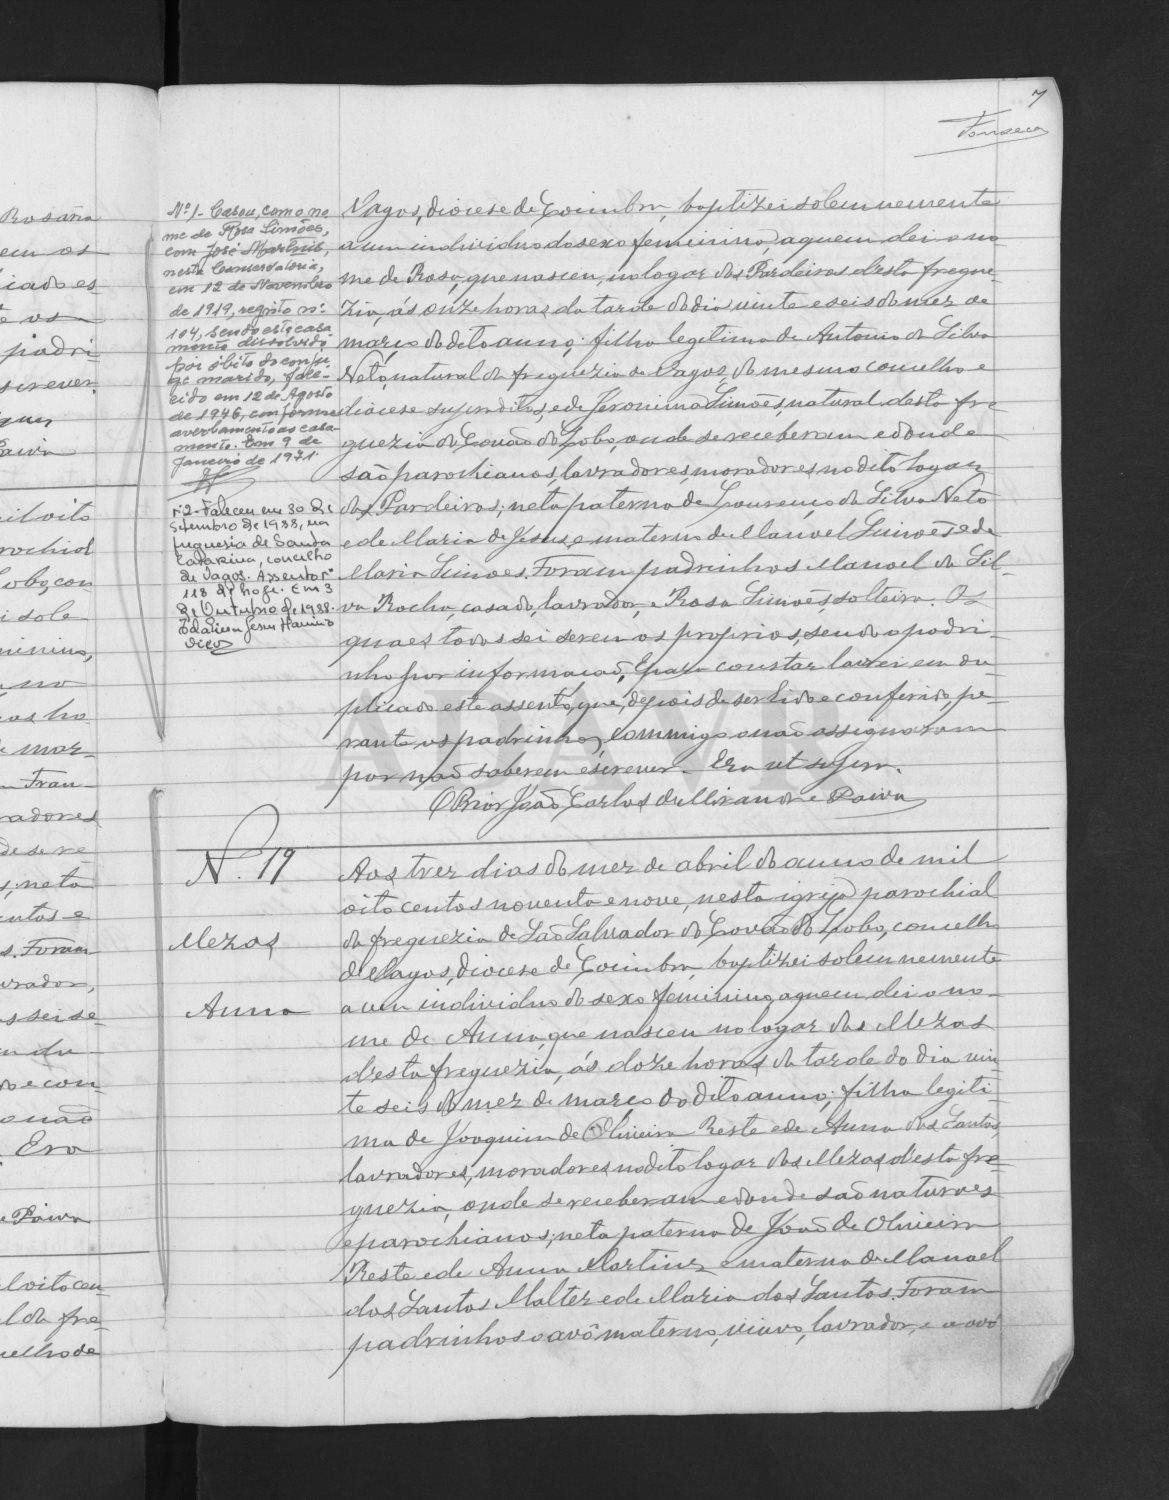 7
Fonseca
Nº 1 - Casou, com o no
me de Rosa Simões,
com José Martins,
nesta Conservatoria,
em 12 de Novembro
de 1919, registo nº
104, sendo este casa
mento dissolvido
por óbito do conju
ge marido, fale-
cido em 12 de Agosto
de 1946, conforme
averbamento ao casa-
mento. Em 9 de
Janeiro de 1971.
nº 2 - Faleceu em 30 de
Setembro de 1988, na
freguesia de Santa
Catarina, concelho
de Vagos. Assento nº
118 de hoje. Em 3
de Outubro de 1988.
Vagos, diocese de Coimbra, baptizei solemnemente
a um individuo do sexo feminino, a quem dei o no-
me de Rosa, que nasceu, no logar dos Pardeiros d'esta fregue-
zia, ás onze horas da tarde do dia vinte e seis do mez de
março do dito anno; filha legitima de Antonio da Silva
Neto, natural da freguezia de Vagos do mesmo concelho e
diocese supraditos, e de Jeronima Simões, natural desta fre
guezia do Covão do Lobo, onde se receberam e donde
são parochianos, lavradores, moradores no dito logar
dos Pardeiros; neta paterna de Lourenço da Silva Neto
e de Maria de Jesus, e materna de Manoel Simões e de
Maria Simões. Foram padrinhos Manoel da Sil-
va Rocha, casado, lavrador, e Rosa Simões, solteira. Os
quaes todos sei serem os proprios, sendo o padri-
nho por informação. E para constar lavrei em du
plicado este assento, que, depois de ser lido e conferido, pe-
rante os padrinhos, commigo o não assignaram
por não saberem escrever. Era ut supra.
O Prior João Carlos de Miranda e Paiva
N.º 19
Mezas
Anna
Aos trez dias do mez de abril do anno de mil
oito centos noventa e nove, nesta igreja parochial
da freguezia de São Salvador do Covão do Lobo, concelho
de Vagos, diocese de Coimbra, baptizei solemnemente
a um individuo do sexo feminino, a quem dei o no-
me de Anna, que nasceu no logar das Mezas
d'esta freguezia, ás doze horas da tarde do dia vin-
te seis do mez de março do dito anno; filha legiti-
ma de Joaquim de Oliveira Reste e de Anna dos Santos,
lavradores, moradores no dito logar das Mezas d'esta fre-
guezia, onde se receberam e donde são naturaes
e parochianos; neta paterna de João de Oliveira
Reste e de Anna Martins, e materna de Manoel
dos Santos Malter e de Maria dos Santos. Foram
padrinhos o avô materno, viuvo, lavrador, e a avó
ADAVR